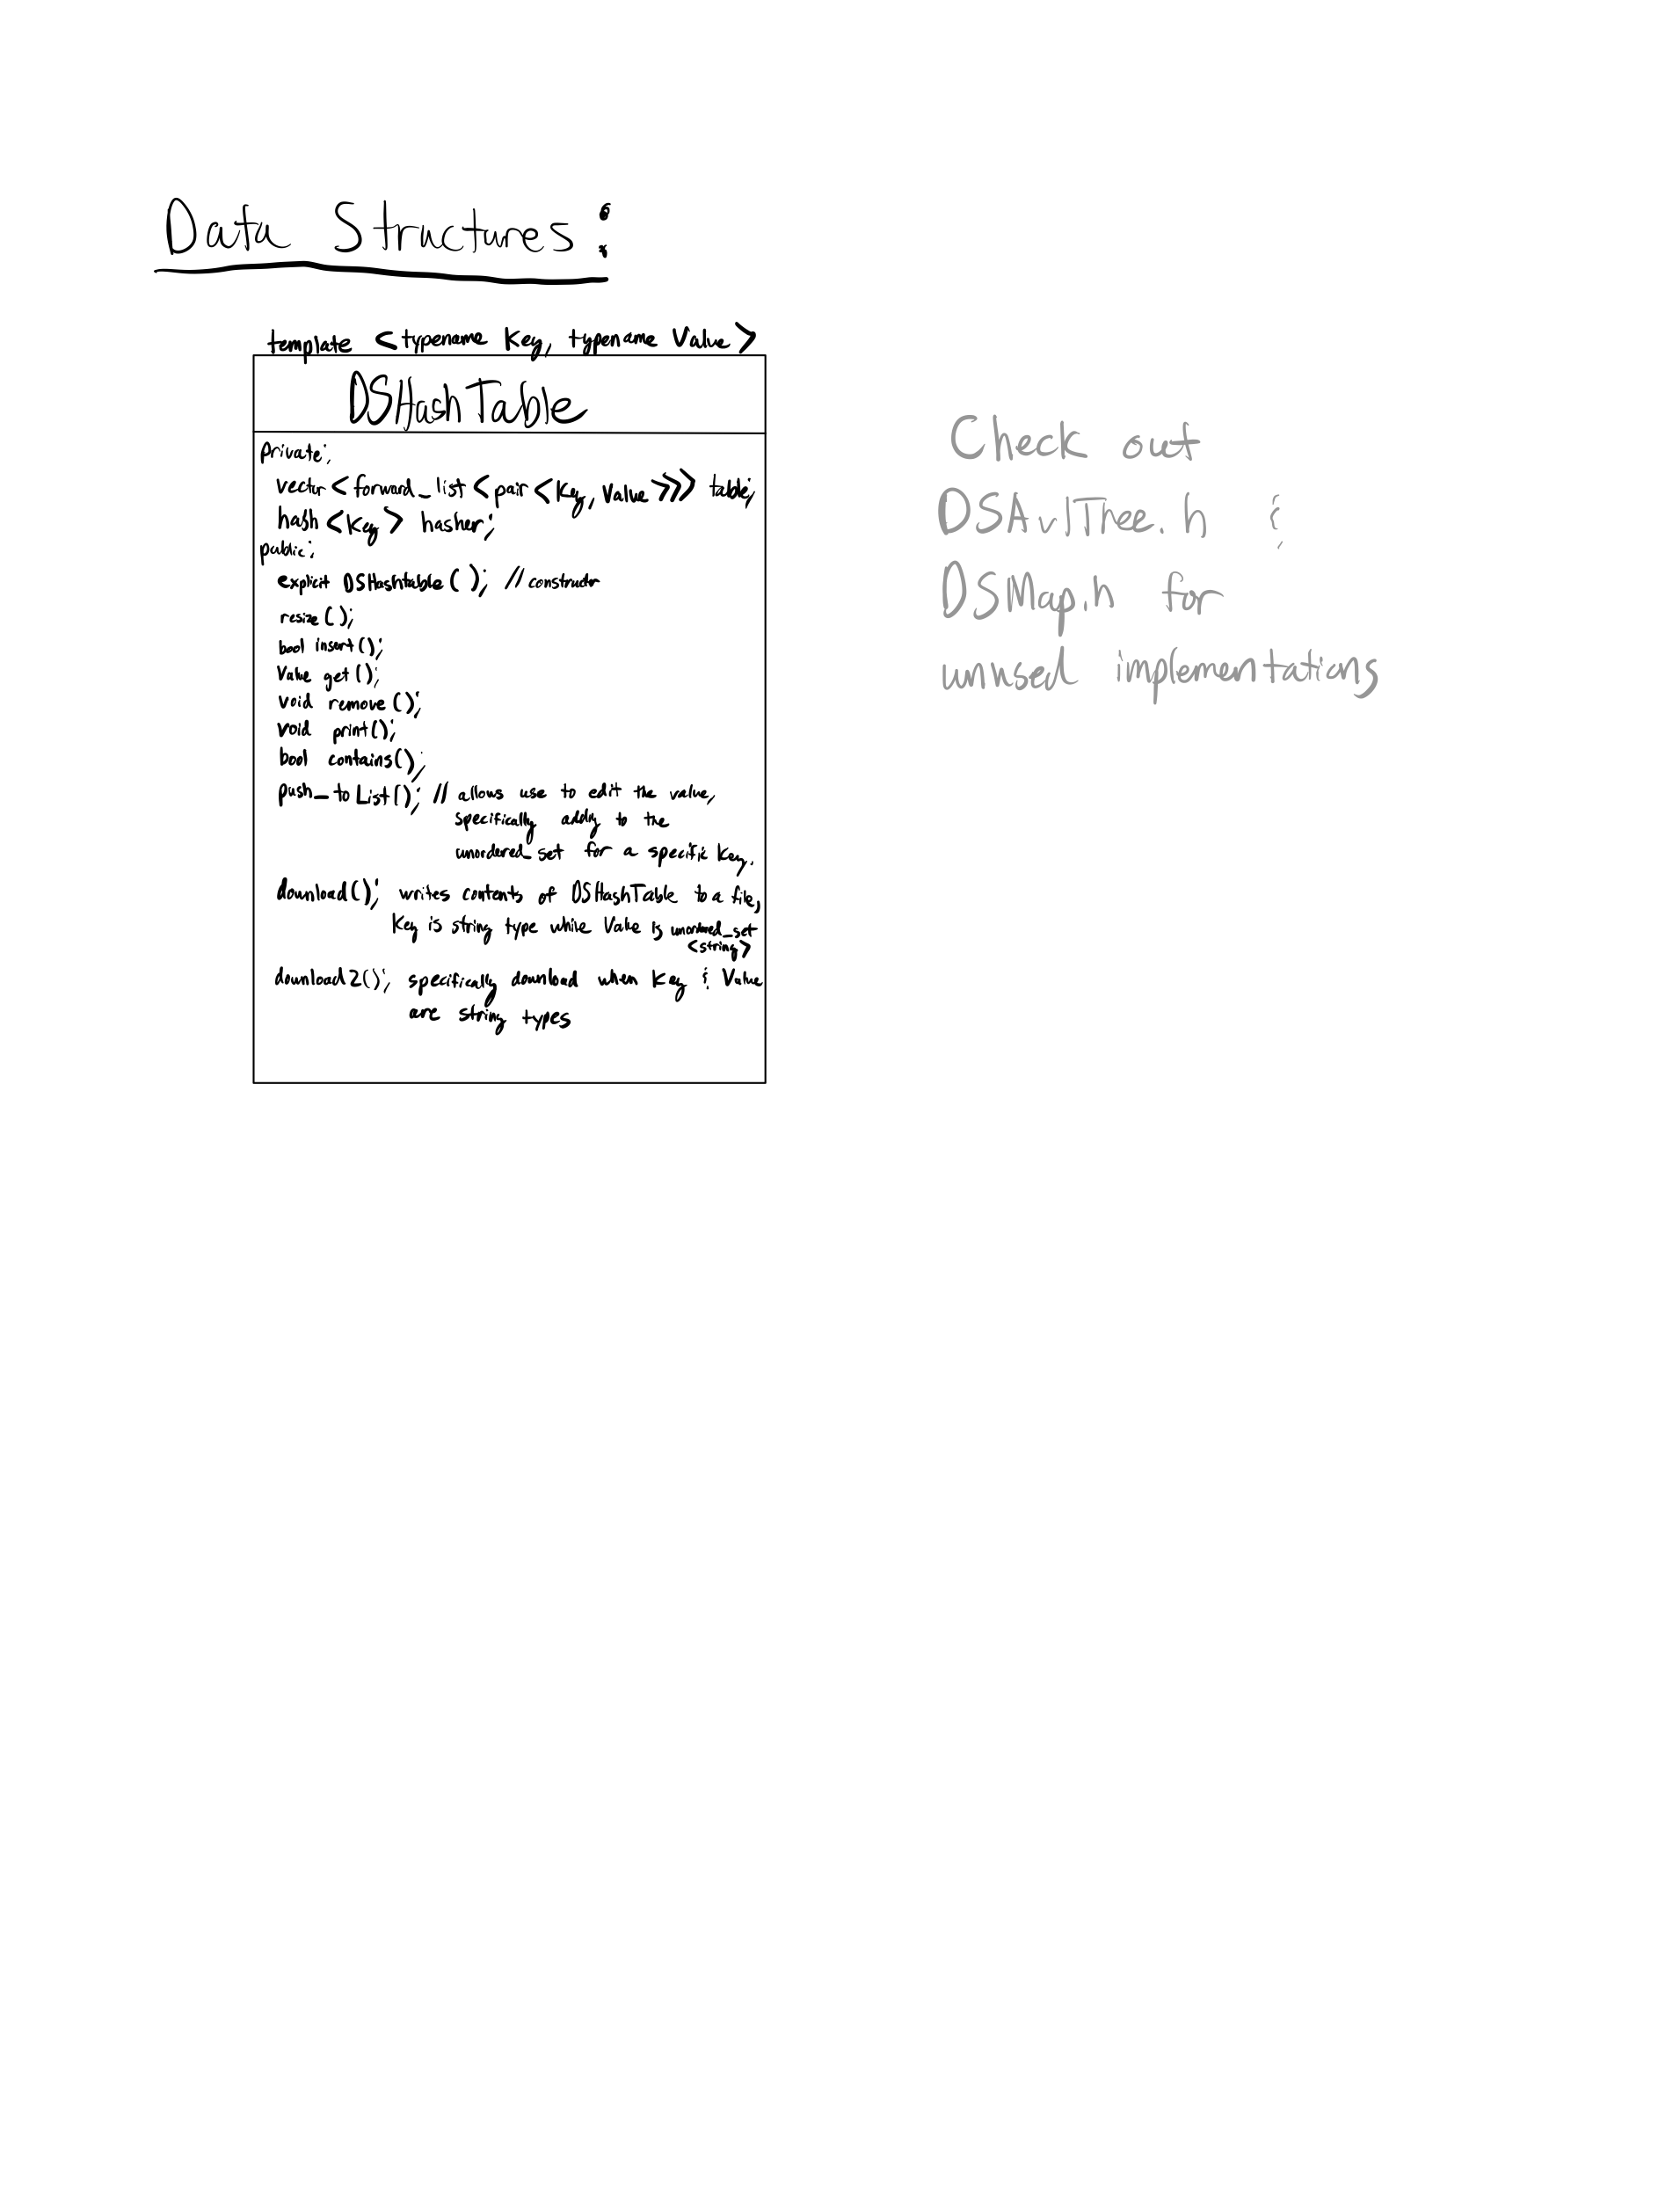 Data Structures:
template <typename Key, typename Value>
DSHashTable
private:
vector<forward_list<pair<Key, Value>>> table;
hash<Key> hasher;
public:
explicit DSHashtable(); // constructor
resize();
bool insert();
Value get();
void remove();
void print();
bool contains();
push_to List(); // allows use to edit the value,
specifically adding to the
unordered_set for a specific key.
download(); writes contents of DSHashTable to a file,
Key is string type while Value is unordered_set
<string>
download2(); specifically download when Key & Value
are string types
Check out
DSAvlTree.h &
DSMap.h for
unused implementations